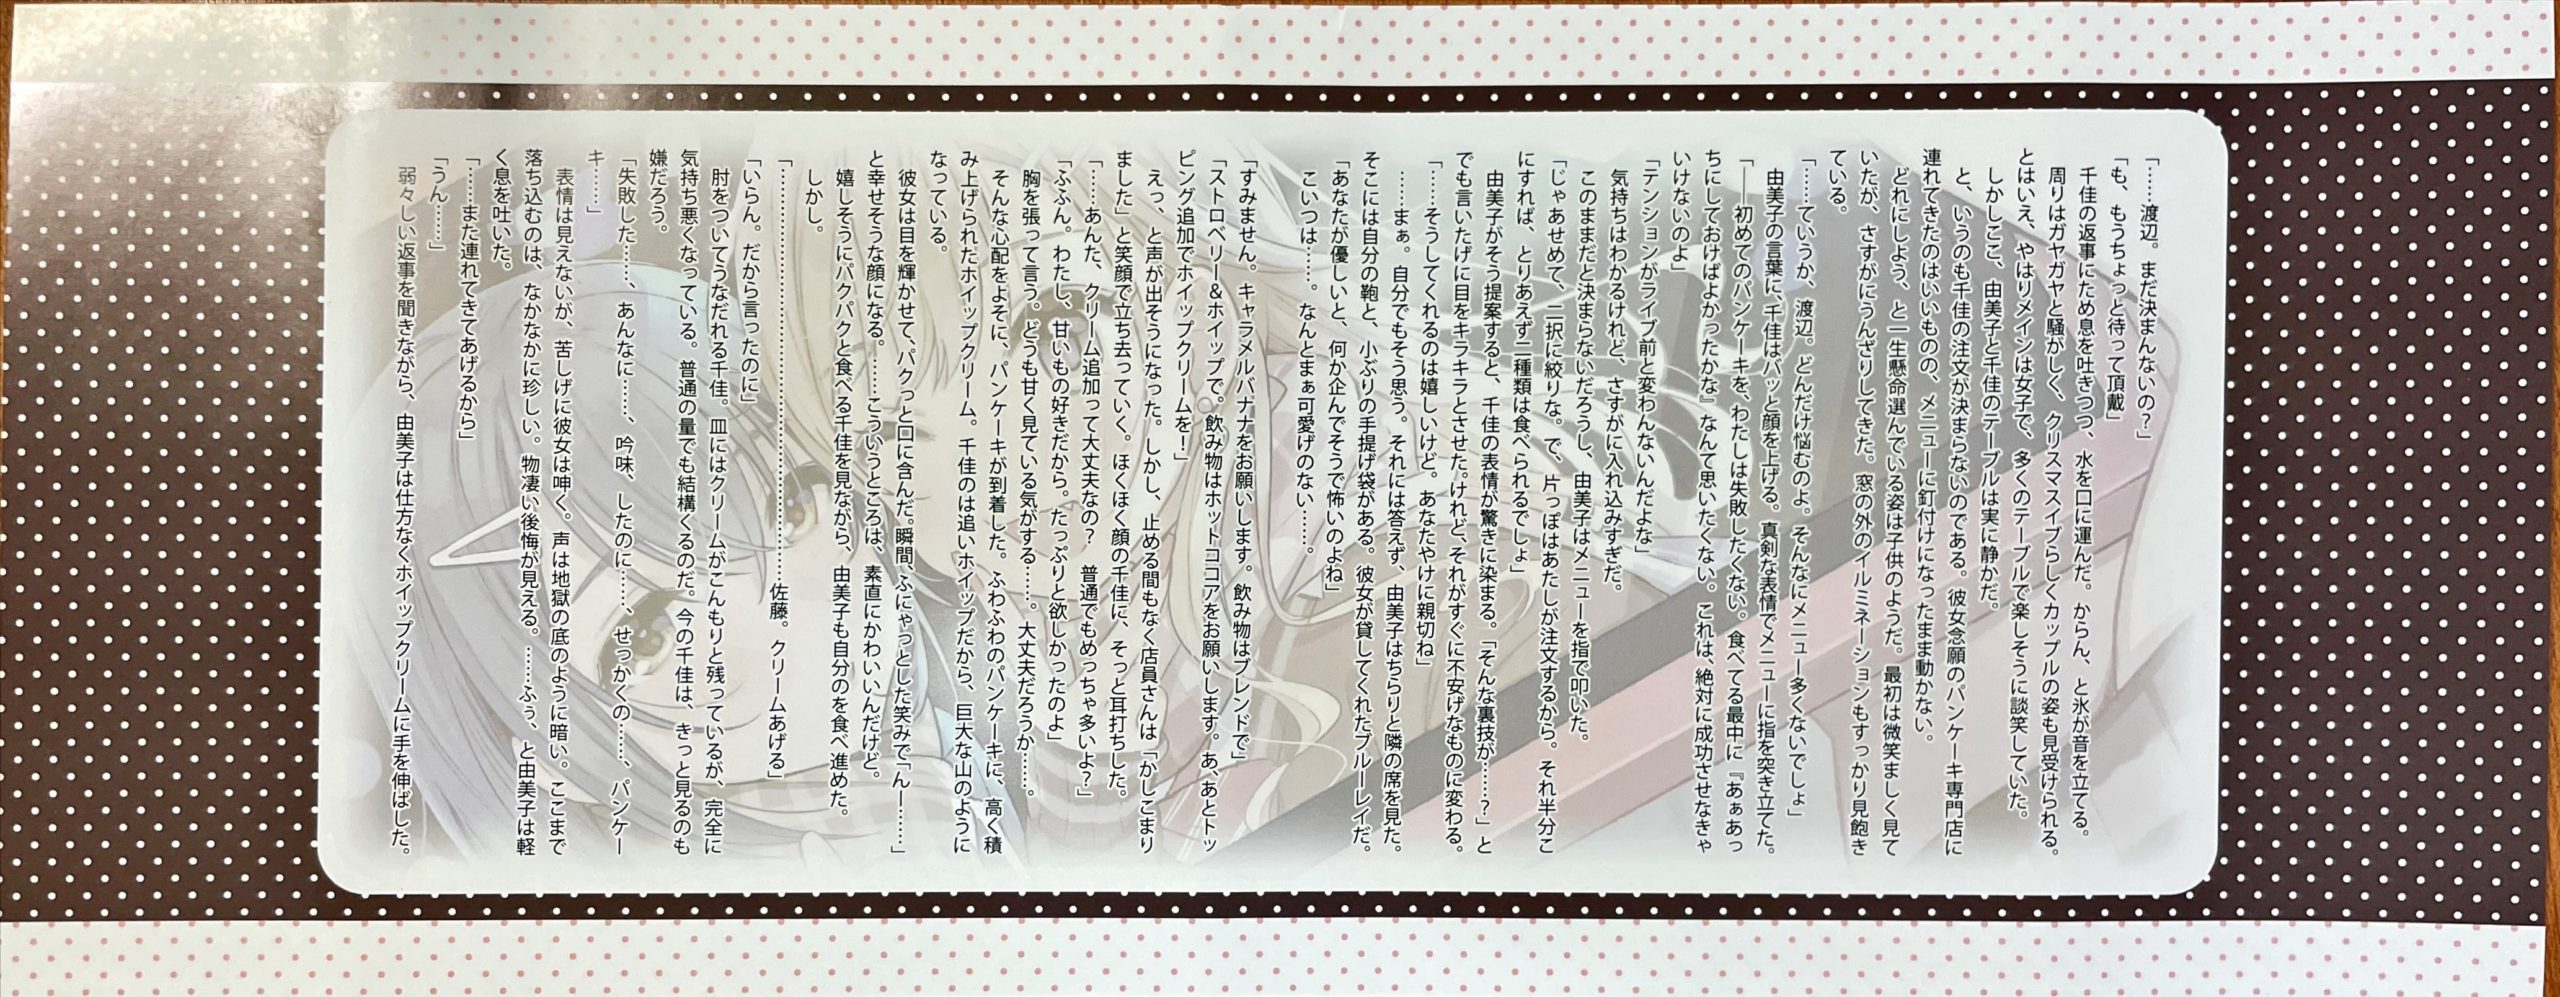 「……渡辺。まだ決まんないの？」
「も、もうちょっと待って頂戴」
千佳の返事にため息を吐きつつ、水を口に運んだ。からん、と氷が音を立てる。
周りはガヤガヤと騒がしく、クリスマスイブらしくカップルの姿も見受けられる。
とはいえ、やはりメインは女子で、多くのテーブルで楽しそうに談笑していた。
しかしここ、由美子と千佳のテーブルは実に静かだ。
と、いうのも千佳の注文が決まらないのである。彼女念願のパンケーキ専門店に
連れてきたのはいいものの、メニューに釘付けになったまま動かない。
どれにしよう、と一生懸命選んでいる姿は子供のようだ。最初は微笑ましく見て
いたが、さすがにうんざりしてきた。窓の外のイルミネーションもすっかり見飽き
ている。
「……ていうか、渡辺。どんだけ悩むのよ。そんなにメニュー多くないでしょ」
由美子の言葉に、千佳はバッと顔を上げる。真剣な表情でメニューに指を突き立てた。
「――初めてのパンケーキを、わたしは失敗したくない。食べてる最中に『あぁあっ
ちにしておけばよかったかな』なんて思いたくない。これは、絶対に成功させなきゃ
いけないのよ」
「テンションがライブ前と変わんないんだよな」
気持ちはわかるけれど、さすがに入れ込みすぎだ。
このままだと決まらないだろうし、由美子はメニューを指で叩いた。
「じゃあせめて、二択に絞りな。で、片っぽはあたしが注文するから。それ半分こ
にすれば、とりあえず二種類は食べられるでしょ」
由美子がそう提案すると、千佳の表情が驚きに染まる。「そんな裏技が……？」と
でも言いたげに目をキラキラとさせた。けれど、それがすぐに不安げなものに変わる。
「……そうしてくれるのは嬉しいけど。あなたやけに親切ね」
……まぁ。自分でもそう思う。それには答えず、由美子はちらりと隣の席を見た。
そこには自分の鞄と、小ぶりの手提げ袋がある。彼女が貸してくれたブルーレイだ。
「あなたが優しいと、何か企んでそうで怖いのよね」
こいつは……。なんとまぁ可愛げのない……。
「すみません。キャラメルバナナをお願いします。飲み物はブレンドで」
「ストロベリー＆ホイップで。飲み物はホットココアをお願いします。あ、あとトッ
ピング追加でホイップクリームを！」
えっ、と声が出そうになった。しかし、止める間もなく店員さんは「かしこまり
ました」と笑顔で立ち去っていく。ほくほく顔の千佳に、そっと耳打ちした。
「……あんた、クリーム追加って大丈夫なの？　普通でもめっちゃ多いよ？」
「ふふん。わたし、甘いもの好きだから。たっぷりと欲しかったのよ」
胸を張って言う。どうも甘く見ている気がする……。大丈夫だろうか……。
そんな心配をよそに、パンケーキが到着した。ふわふわのパンケーキに、高く積
み上げられたホイップクリーム。千佳のは追いホイップだから、巨大な山のように
なっている。
彼女は目を輝かせて、パクっと口に含んだ。瞬間、ふにゃっとした笑みで「んー……」
と幸せそうな顔になる。……こういうところは、素直にかわいいんだけど。
嬉しそうにパクパクと食べる千佳を見ながら、由美子も自分のを食べ進めた。
しかし。
「………………………………………………佐藤。クリームあげる」
「いらん。だから言ったのに」
肘をついてうなだれる千佳。皿にはクリームがこんもりと残っているが、完全に
気持ち悪くなっている。普通の量でも結構くるのだ。今の千佳は、きっと見るのも
嫌だろう。
「失敗した……、あんなに……、吟味、したのに……、せっかくの……、パンケー
キ……」
表情は見えないが、苦しげに彼女は呻く。声は地獄の底のように暗い。ここまで
落ち込むのは、なかなかに珍しい。物凄い後悔が見える。……ふぅ、と由美子は軽
く息を吐いた。
「……また連れてきてあげるから」
「うん……」
弱々しい返事を聞きながら、由美子は仕方なくホイップクリームに手を伸ばした。